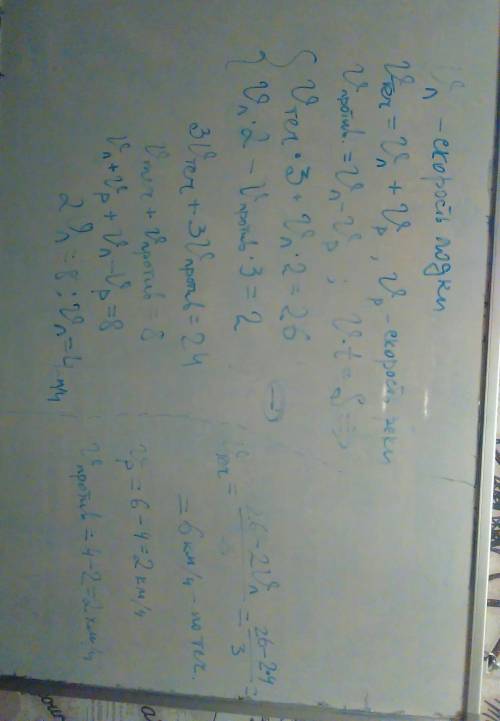 υл - скорость лодки
υтеч = υл + υр , υр - скорость реки
υпротив. = υл - υр ; υ·t = S ⇒
{ υтеч · 3 + υл · 2 = 26
{ υл · 2 - υпротив · 3 = 2
3υтеч + 3υпротив = 24
υтеч + υпротив = 8
υл + υр + υл - υр = 8
2υл = 8 ; υл = 4 км/ч
⇒
υтеч = (26 - 2υл)/3 = (26 - 2·4)/3 =
= 6 км/ч - по теч.
υр = 6 - 4 = 2 км/ч
υпротив = 4 - 2 = 2 км/ч